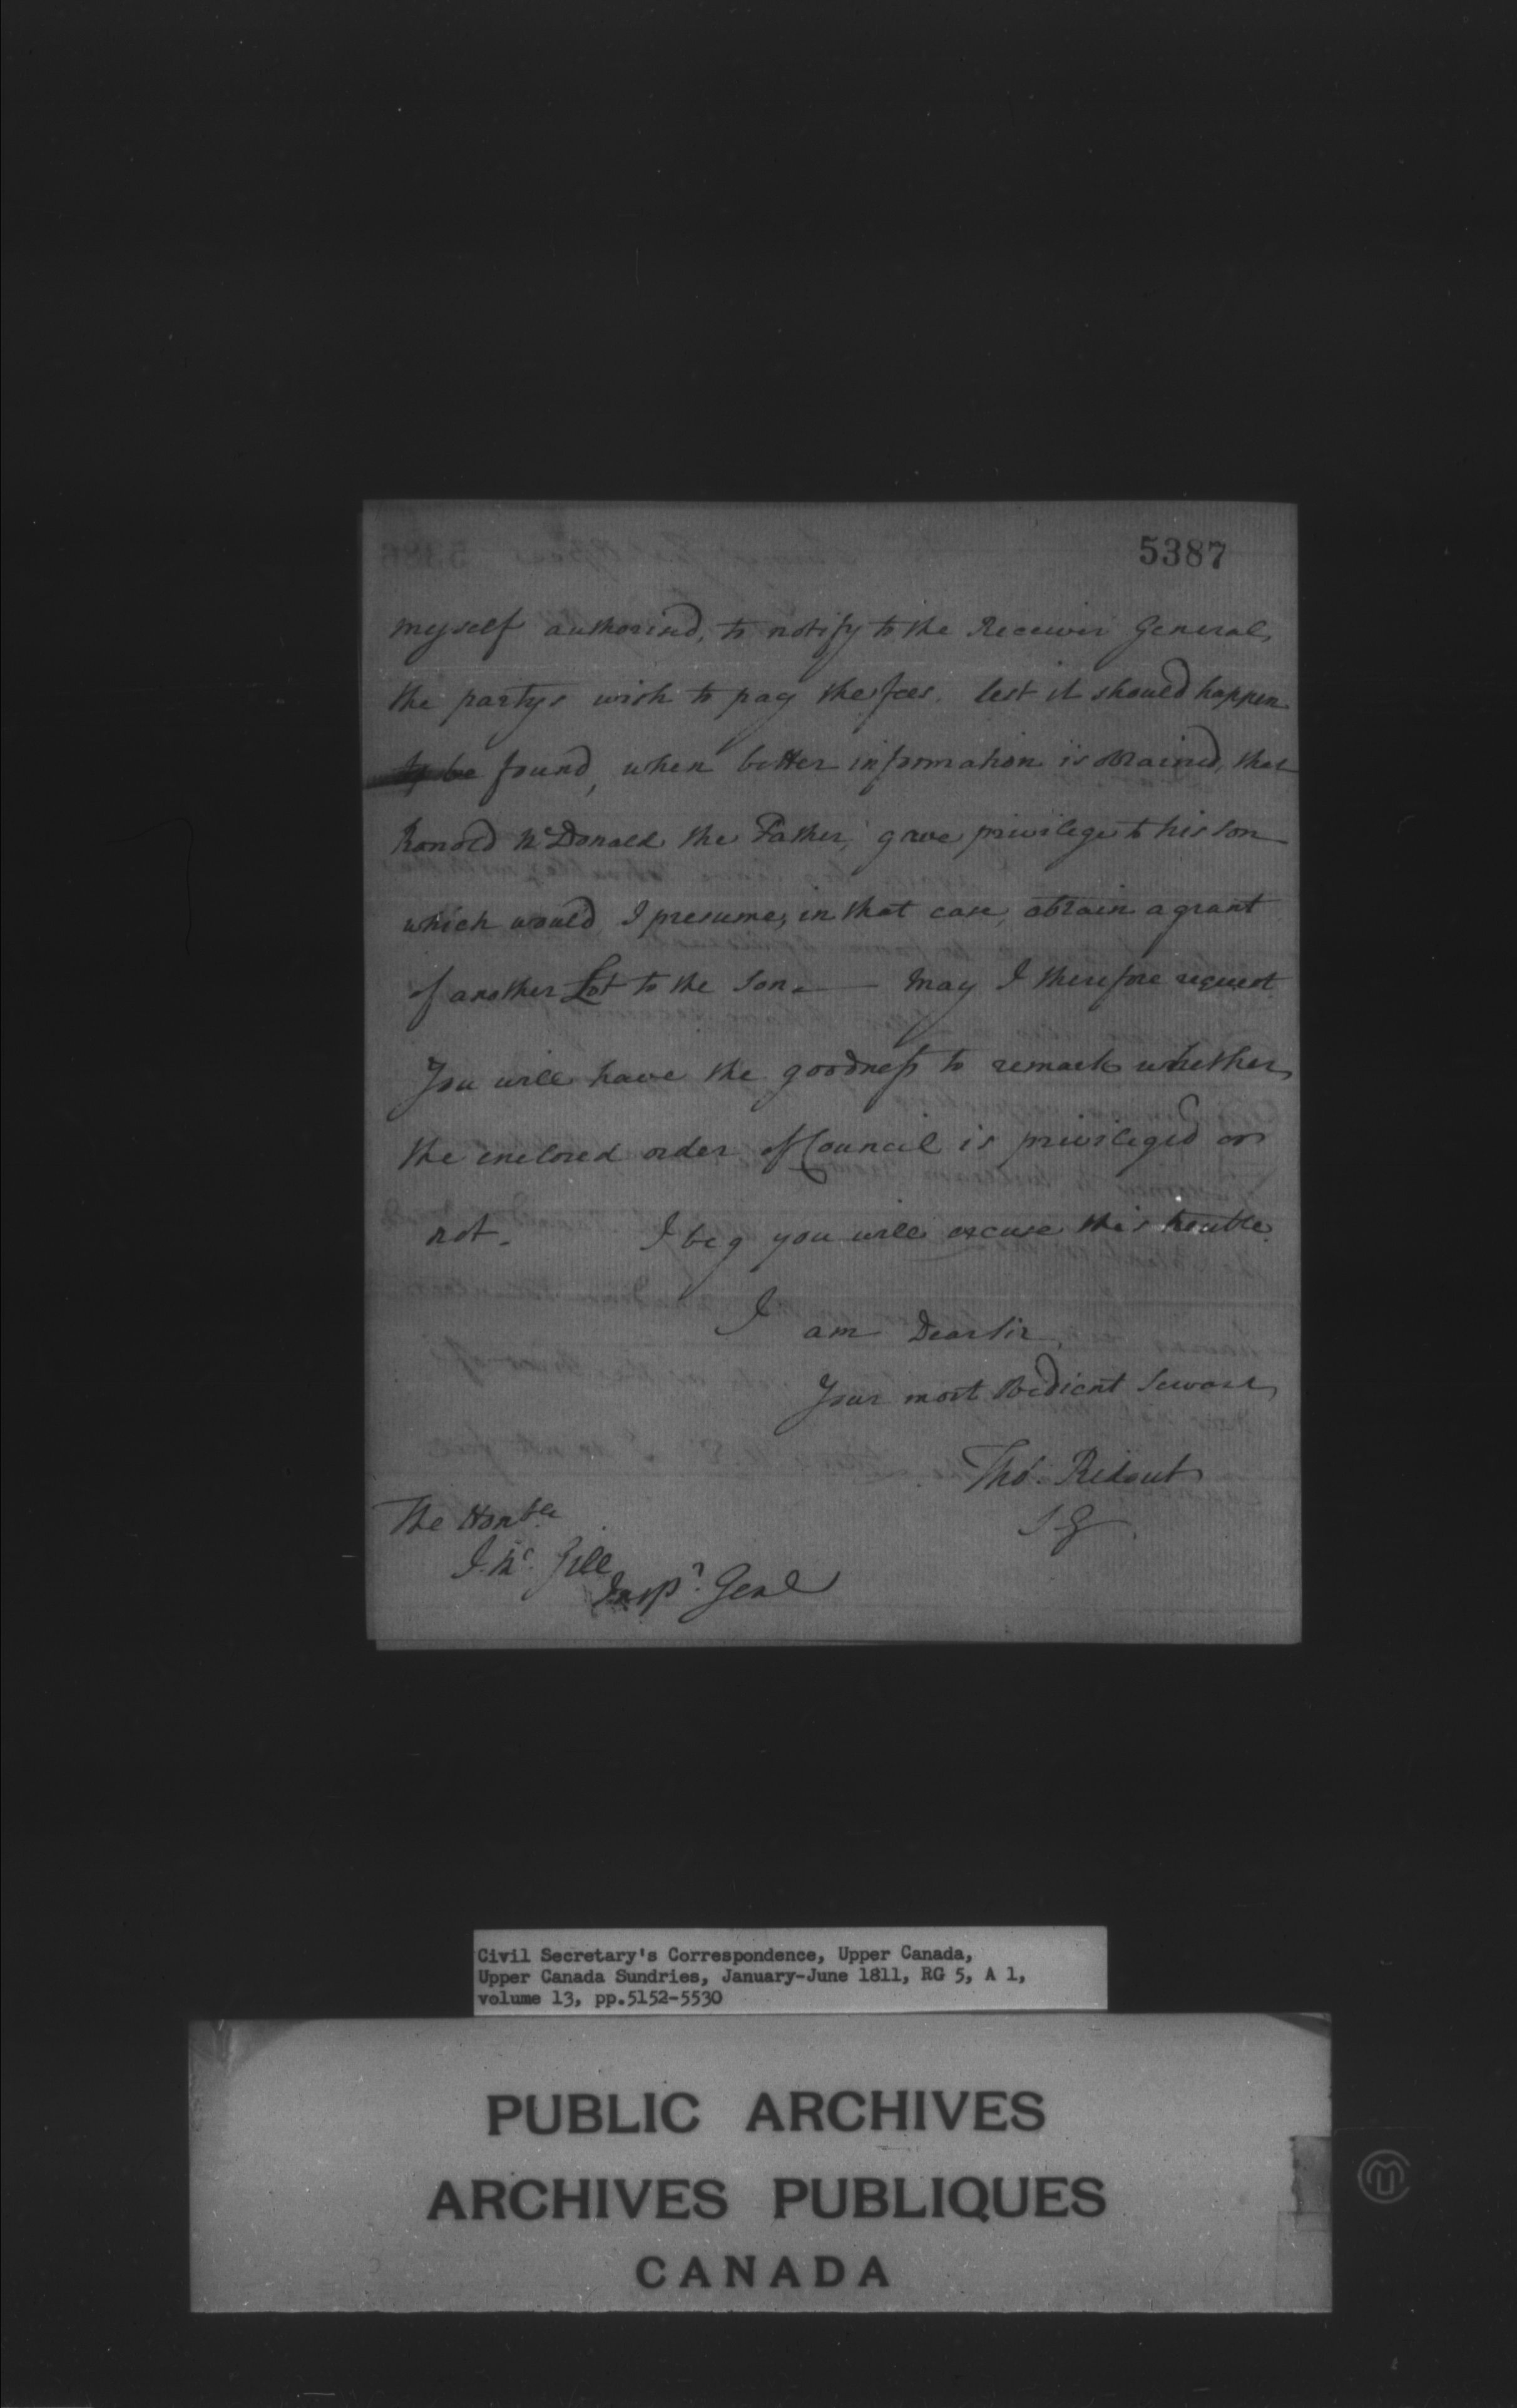 5387
myself authorised, to notify to the Receiver General,
the partys wish to pay the fees. lest it should happen
to be found, when better information is obtained, that
Ronold McDonald the Father, gave privilege to his son
which would, I presume, in that case, obtain a grant
of another Lot to the Son. — May I therefore request
You will have the goodness to remark whether
the enclosed order of Council is privileged or
not. I beg you will excuse this trouble.
I am Dear Sir,
Your most Obedient Servant
Thos. Ridout
S G.
The Honble
J. Mc. Gill
Inspr. Genl
Civil Secretary's Correspondence, Upper Canada,
Upper Canada Sundries, January-June 1811, RG 5, A 1,
volume 13, pp.5152-5530
PUBLIC ARCHIVES
ARCHIVES PUBLIQUES
CANADA